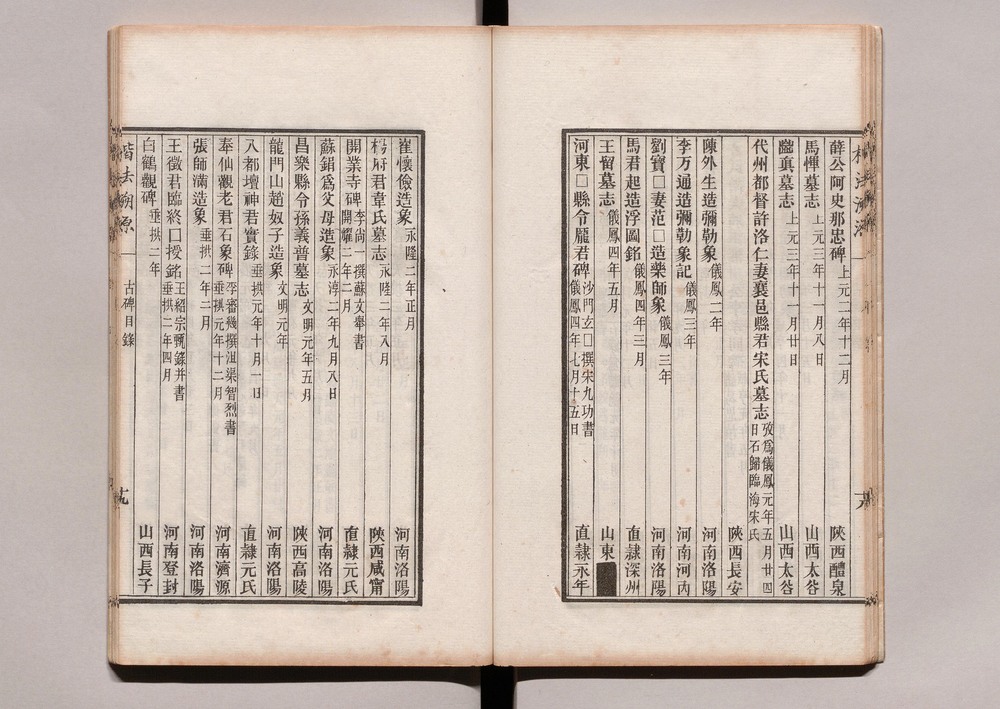 薛公阿史那忠碑 上元二年十二月 陝西醴泉
馬惲墓志 上元三年十一月八日 山西太谷
龐真墓志 上元三年十一月廿日 山西太谷
代州都督許洛仁妻襄邑縣君宋氏墓志 攷爲儀鳳元年五月廿四
日石歸臨海宋氏
陝西長安
陳外生造彌勒象 儀鳳二年 河南洛陽
李万通造彌勒象記 儀鳳三年 河南河內
劉寶□妻范□造藥師象 儀鳳三年 河南洛陽
馬君起造浮圖銘 儀鳳四年三月 直隸深州
王留墓志 儀鳳四年五月 山東
河東□縣令龐君碑 沙門玄□撰宋九功書
儀鳳四年七月十五日
直隸永年
十八
崔懷儉造象 永隆二年正月 河南洛陽
楊府君韋氏墓志 永隆二年八月 陝西咸甯
開業寺碑 李尙一撰蘇文舉書
開耀二年二月
直隸元氏
蘇鋗爲父母造象 永淳二年九月八日 河南洛陽
昌樂縣令孫義普墓志 文明元年五月 陝西高陵
龍門山趙奴子造象 文明元年 河南洛陽
八都壇神君實錄 垂拱元年十月一日 直隸元氏
奉仙觀老君石象碑 李審幾撰沮渠智烈書
垂拱元年十二月
河南濟源
張師滿造象 垂拱二年二月 河南洛陽
王徵君臨終口授銘 王紹宗甄錄并書
垂拱二年四月
河南登封
白鶴觀碑 垂拱二年 山西長子
楷法溯源 一 古碑目錄 十九